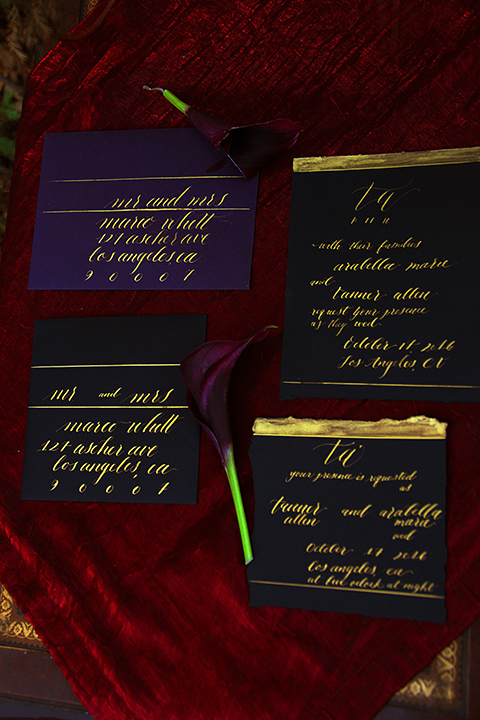 mr and mrs
marco whitt
121 ascher ave
los angeles ca
90007
ta
with their families
arabella marie
and
tanner allen
request your presence
as they wed
October 17 2016
Los Angeles, CA
mr and mrs
marco whitt
121 ascher ave
los angeles, ca
90007
ta
your presence is requested
as
tanner and arabella
allen marie
wed
October 17 2016
los angeles, ca
at five o'clock at night